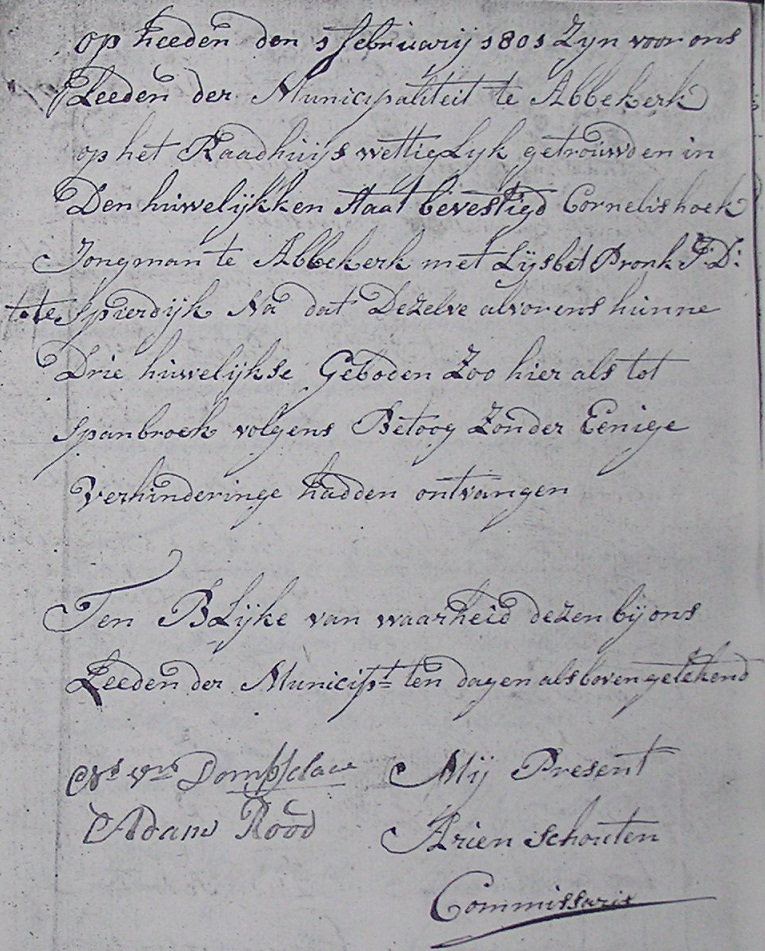 op heeden den 1 februarij 1801 Zyn voor ons
Leeden der Municipaliteit te Abbekerk
op het Raadhuijs wettig Lyk getrouwd en in
Den huwelijkken staat bevestigd Cornelis hoek
Jongman te Abbekerk met Lijsbet Pronk J: D:
tot Spierdijk Na dat Dezelve alvorens hunne
Drie huwelijkse Geboden Zoo hier als tot
Spanbroek volgens Betoog Zonder Eenige
Verhinderinge hadden ontvangen
Ten BLijke van waarheid dezen bij ons
Leeden der Municipt. ten dagen als boven getekend
Mij Present
Adam Rood Arien Schouten
Commissaris